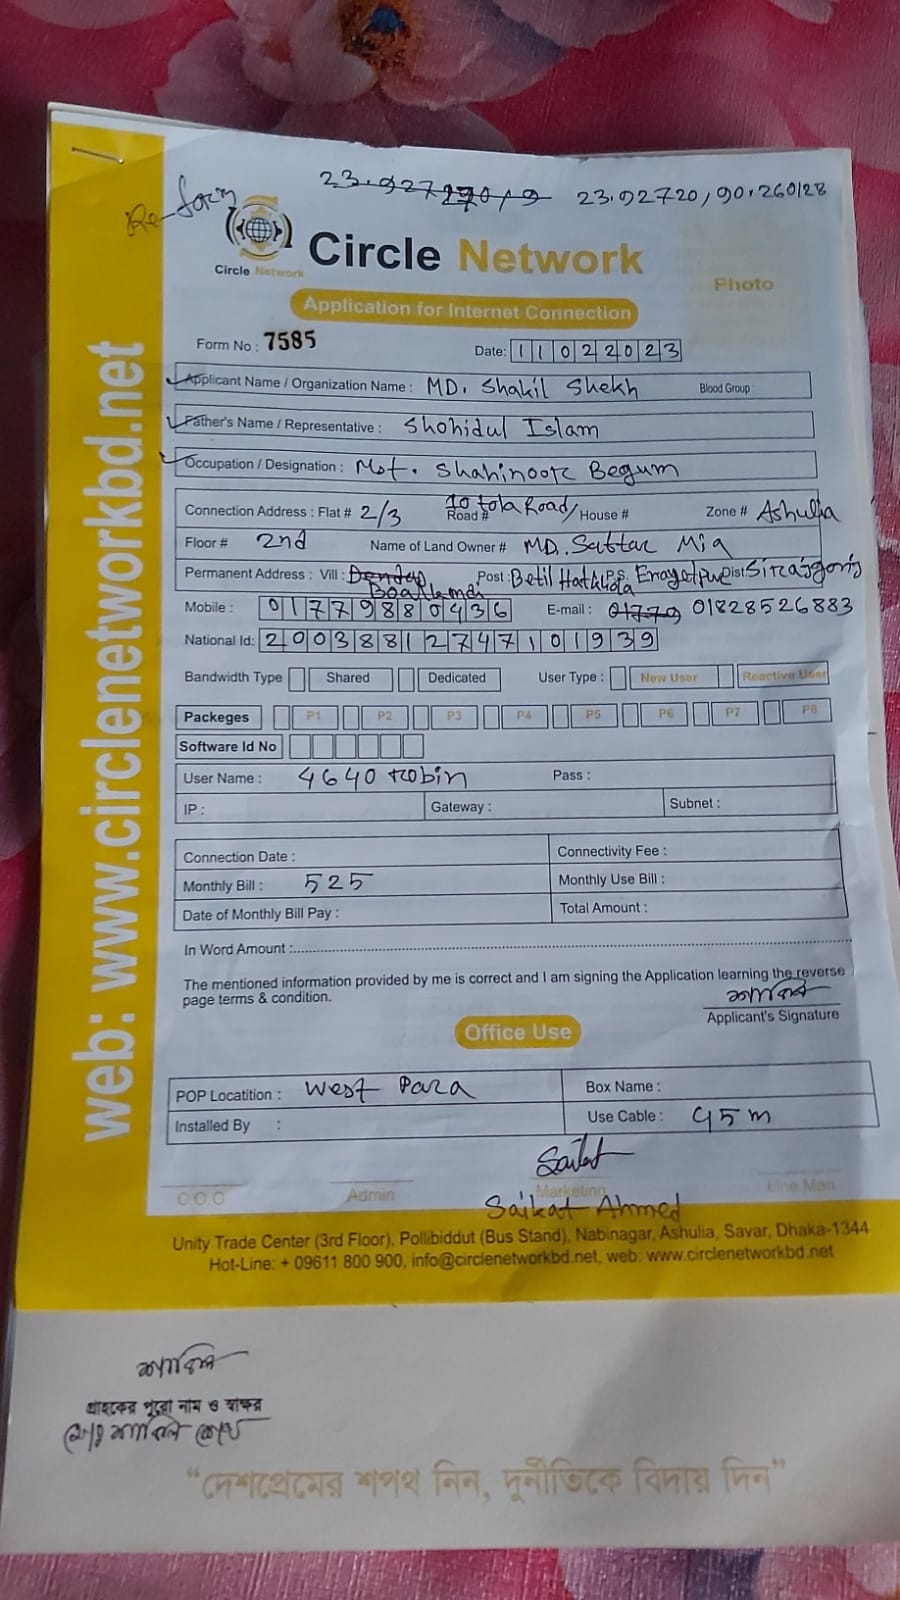 Re-form
23.92720,90.260128
Circle Network
Circle Network
Photo
Application for Internet Connection
Form No : 7585
Date: 11022023
Applicant Name / Organization Name : MD. Shakil Shekh Blood Group :
Father's Name / Representative : Shohidul Islam
Occupation / Designation : Mst. Shahinoor Begum
Connection Address : Flat # 2/3 Road # 10 tola Road/ House # Zone # Ashulia
Floor # 2nd Name of Land Owner # MD. Sattar Mia
Permanent Address : Vill : Post : Betil Hatkhola P.S. Enayetpur Dist Sirajgonj
Mobile : 01779880436 E-mail : 01828526883
National Id: 20038812747101939
Bandwidth Type Shared Dedicated User Type : New User Reactive User
Packeges P1 P2 P3 P4 P5 P6 P7 P8
Software Id No
User Name : 4640 robin Pass :
IP : Gateway : Subnet :
Connection Date : Connectivity Fee :
Monthly Bill : 525 Monthly Use Bill :
Date of Monthly Bill Pay : Total Amount :
In Word Amount :
The mentioned information provided by me is correct and I am signing the Application learning the reverse
page terms & condition.
শাকিল
Applicant's Signature
Office Use
POP Locatition : West Para Box Name :
Installed By : Use Cable : 45m
Saikat
C.O.O Admin Marketing Line Man
Saikat Ahmed
Unity Trade Center (3rd Floor), Pollibiddut (Bus Stand), Nabinagar, Ashulia, Savar, Dhaka-1344
Hot-Line: + 09611 800 900, info@circlenetworkbd.net, web: www.circlenetworkbd.net
web: www.circlenetworkbd.net
শাকিল
গ্রাহকের পুরো নাম ও স্বাক্ষর
মোঃ শাকিল শেখ
“দেশপ্রেমের শপথ নিন, দুর্নীতিকে বিদায় দিন”